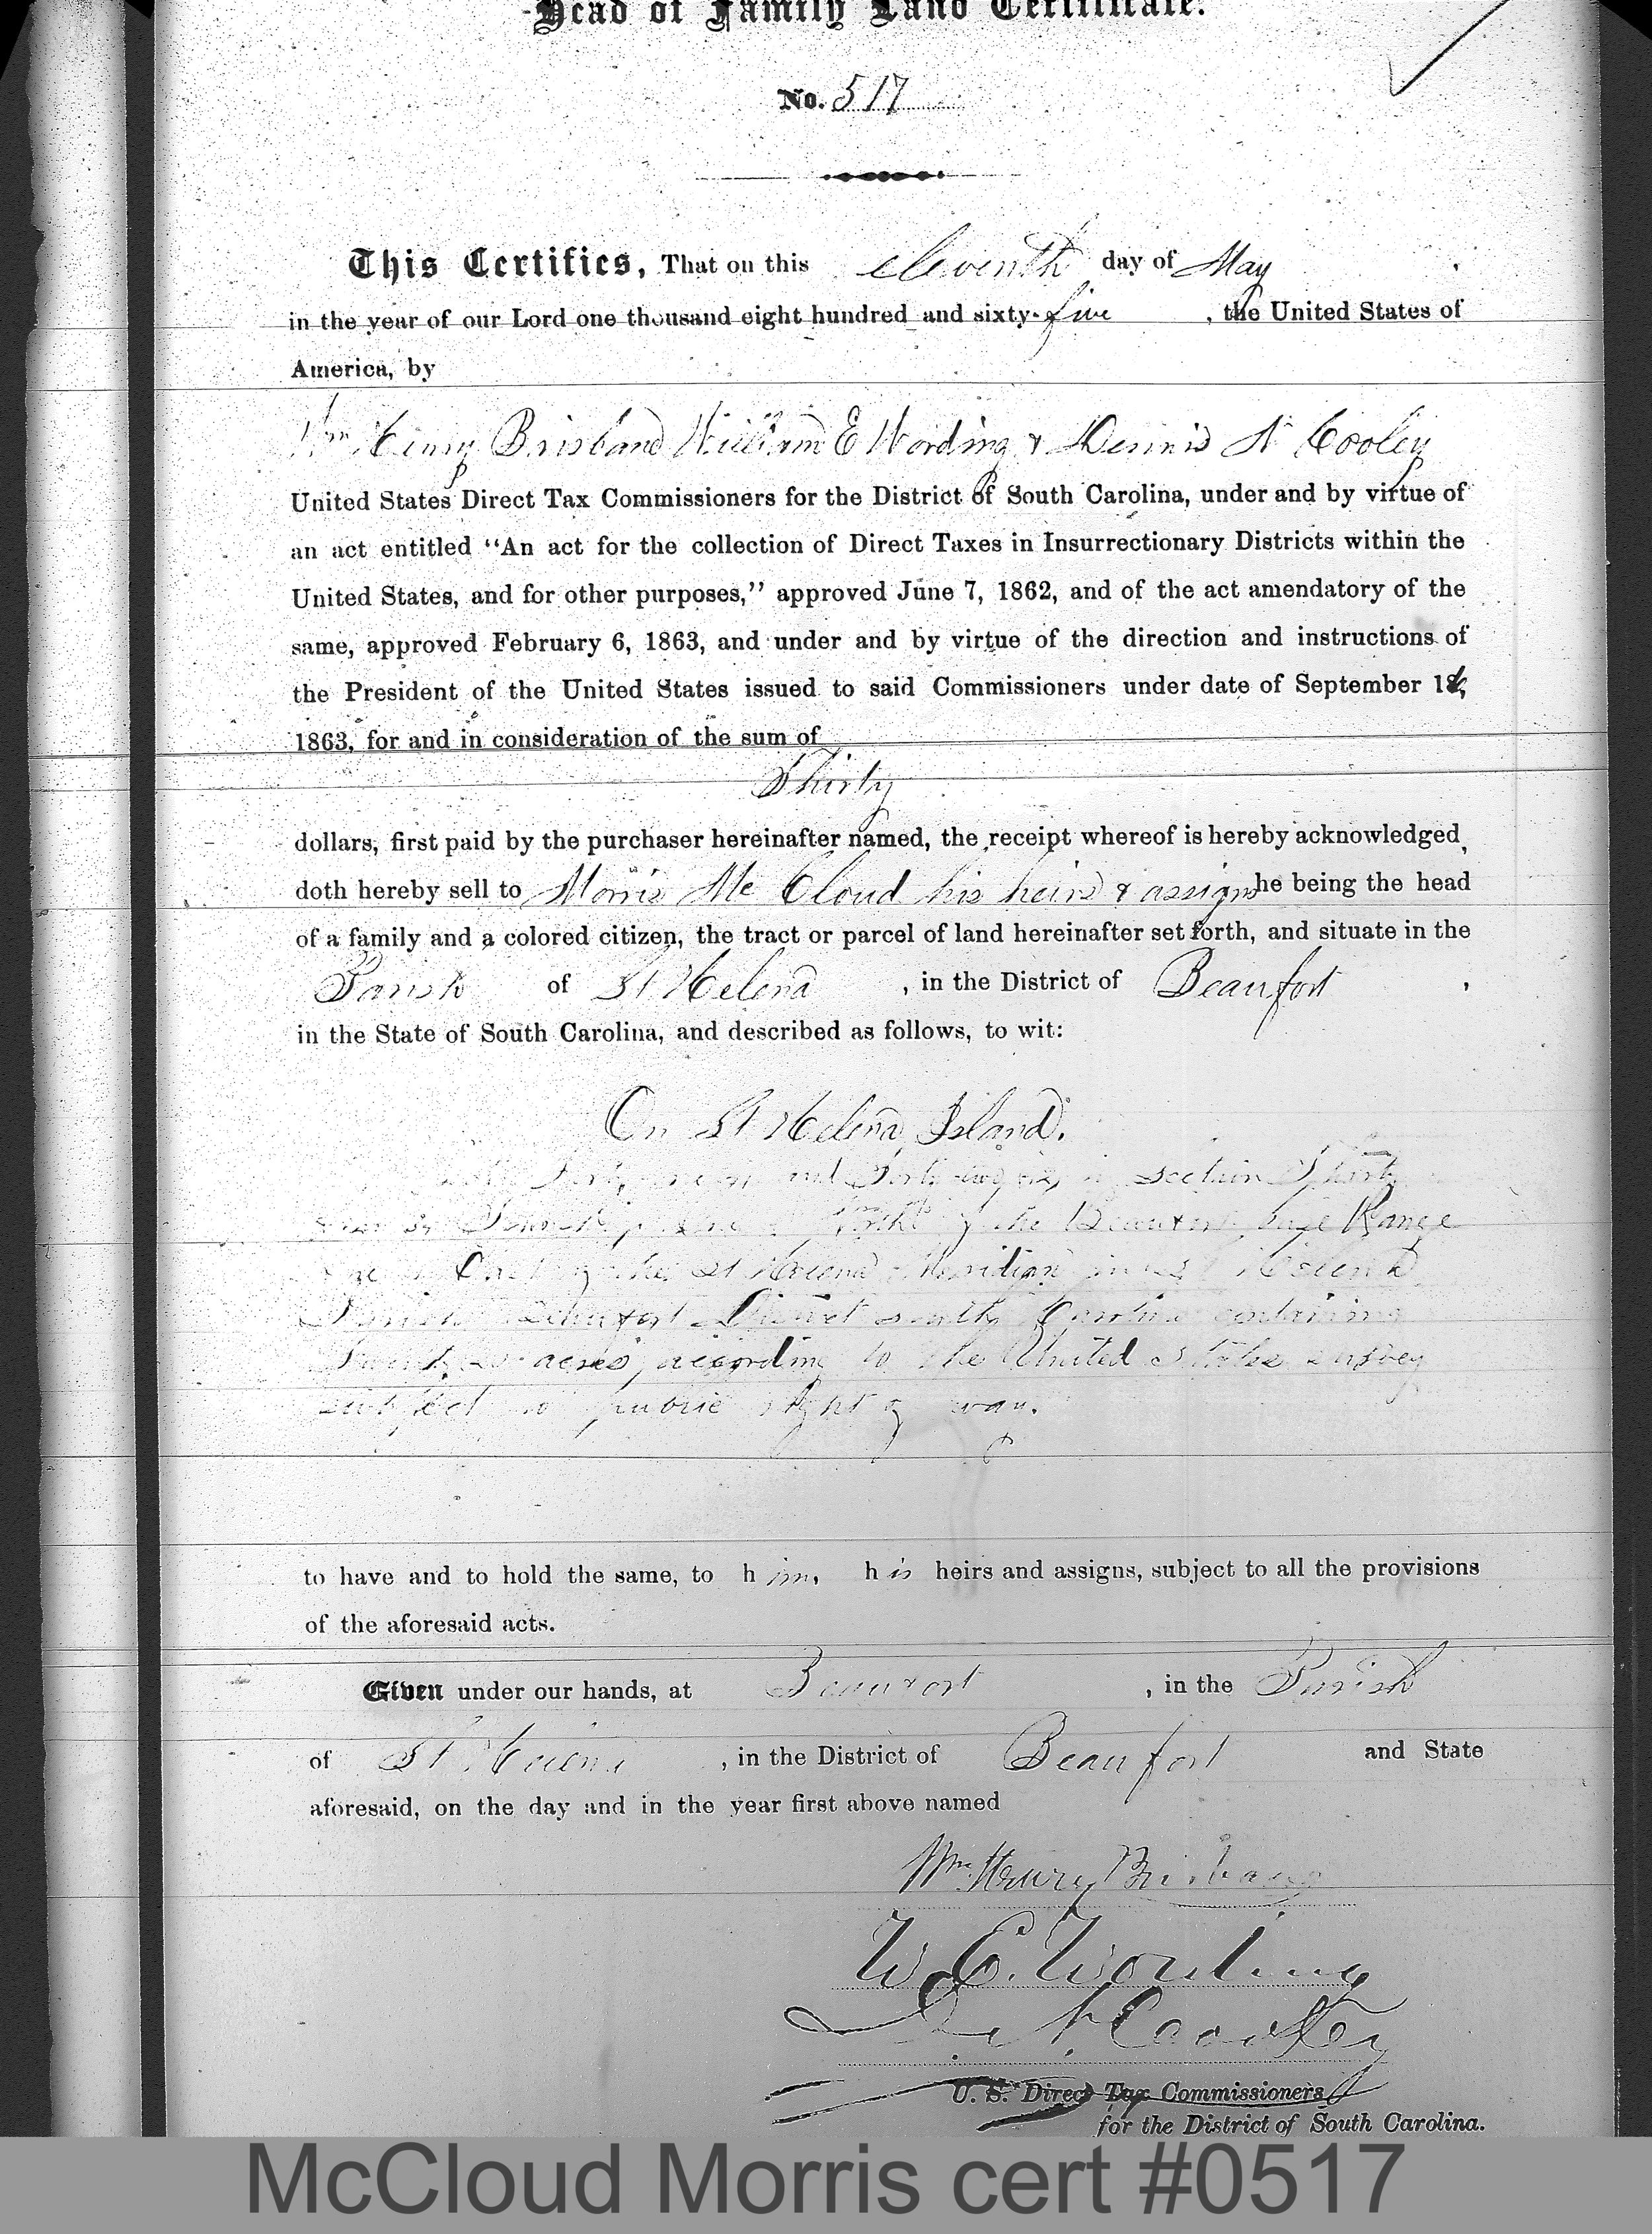 Head of Family Land Certificate.
No. 517
This Certifies, That on this eleventh day of May
in the year of our Lord one thousand eight hundred and sixty-five, the United States of
America, by
Wm Henry Brisband William E Wording & Dennis N Cooley
United States Direct Tax Commissioners for the District of South Carolina, under and by virtue of
an act entitled "An act for the collection of Direct Taxes in Insurrectionary Districts within the
United States, and for other purposes," approved June 7, 1862, and of the act amendatory of the
same, approved February 6, 1863, and under and by virtue of the direction and instructions of
the President of the United States issued to said Commissioners under date of September 16,
1863, for and in consideration of the sum of
Thirty
dollars, first paid by the purchaser hereinafter named, the receipt whereof is hereby acknowledged,
doth hereby sell to Morris Mc Cloud his heirs & assigns he being the head
of a family and a colored citizen, the tract or parcel of land hereinafter set forth, and situate in the
Parish of St Helena, in the District of Beaufort,
in the State of South Carolina, and described as follows, to wit:
On St Helena Island.
and Forty-two in section Thirty
Township North of the Beaufort base Range
East of the St Helena Meridian in St Helena
Parish Beaufort District South Carolina containing
acres, according to the United States survey
subject to public right of way.
to have and to hold the same, to him, his heirs and assigns, subject to all the provisions
of the aforesaid acts.
Given under our hands, at Beaufort, in the Parish
of St Helena, in the District of Beaufort and State
aforesaid, on the day and in the year first above named
Wm. Henry Brisbane
W. E. Wording
D. N. Cooley
U. S. Direct Tax Commissioners
for the District of South Carolina.
McCloud Morris cert #0517